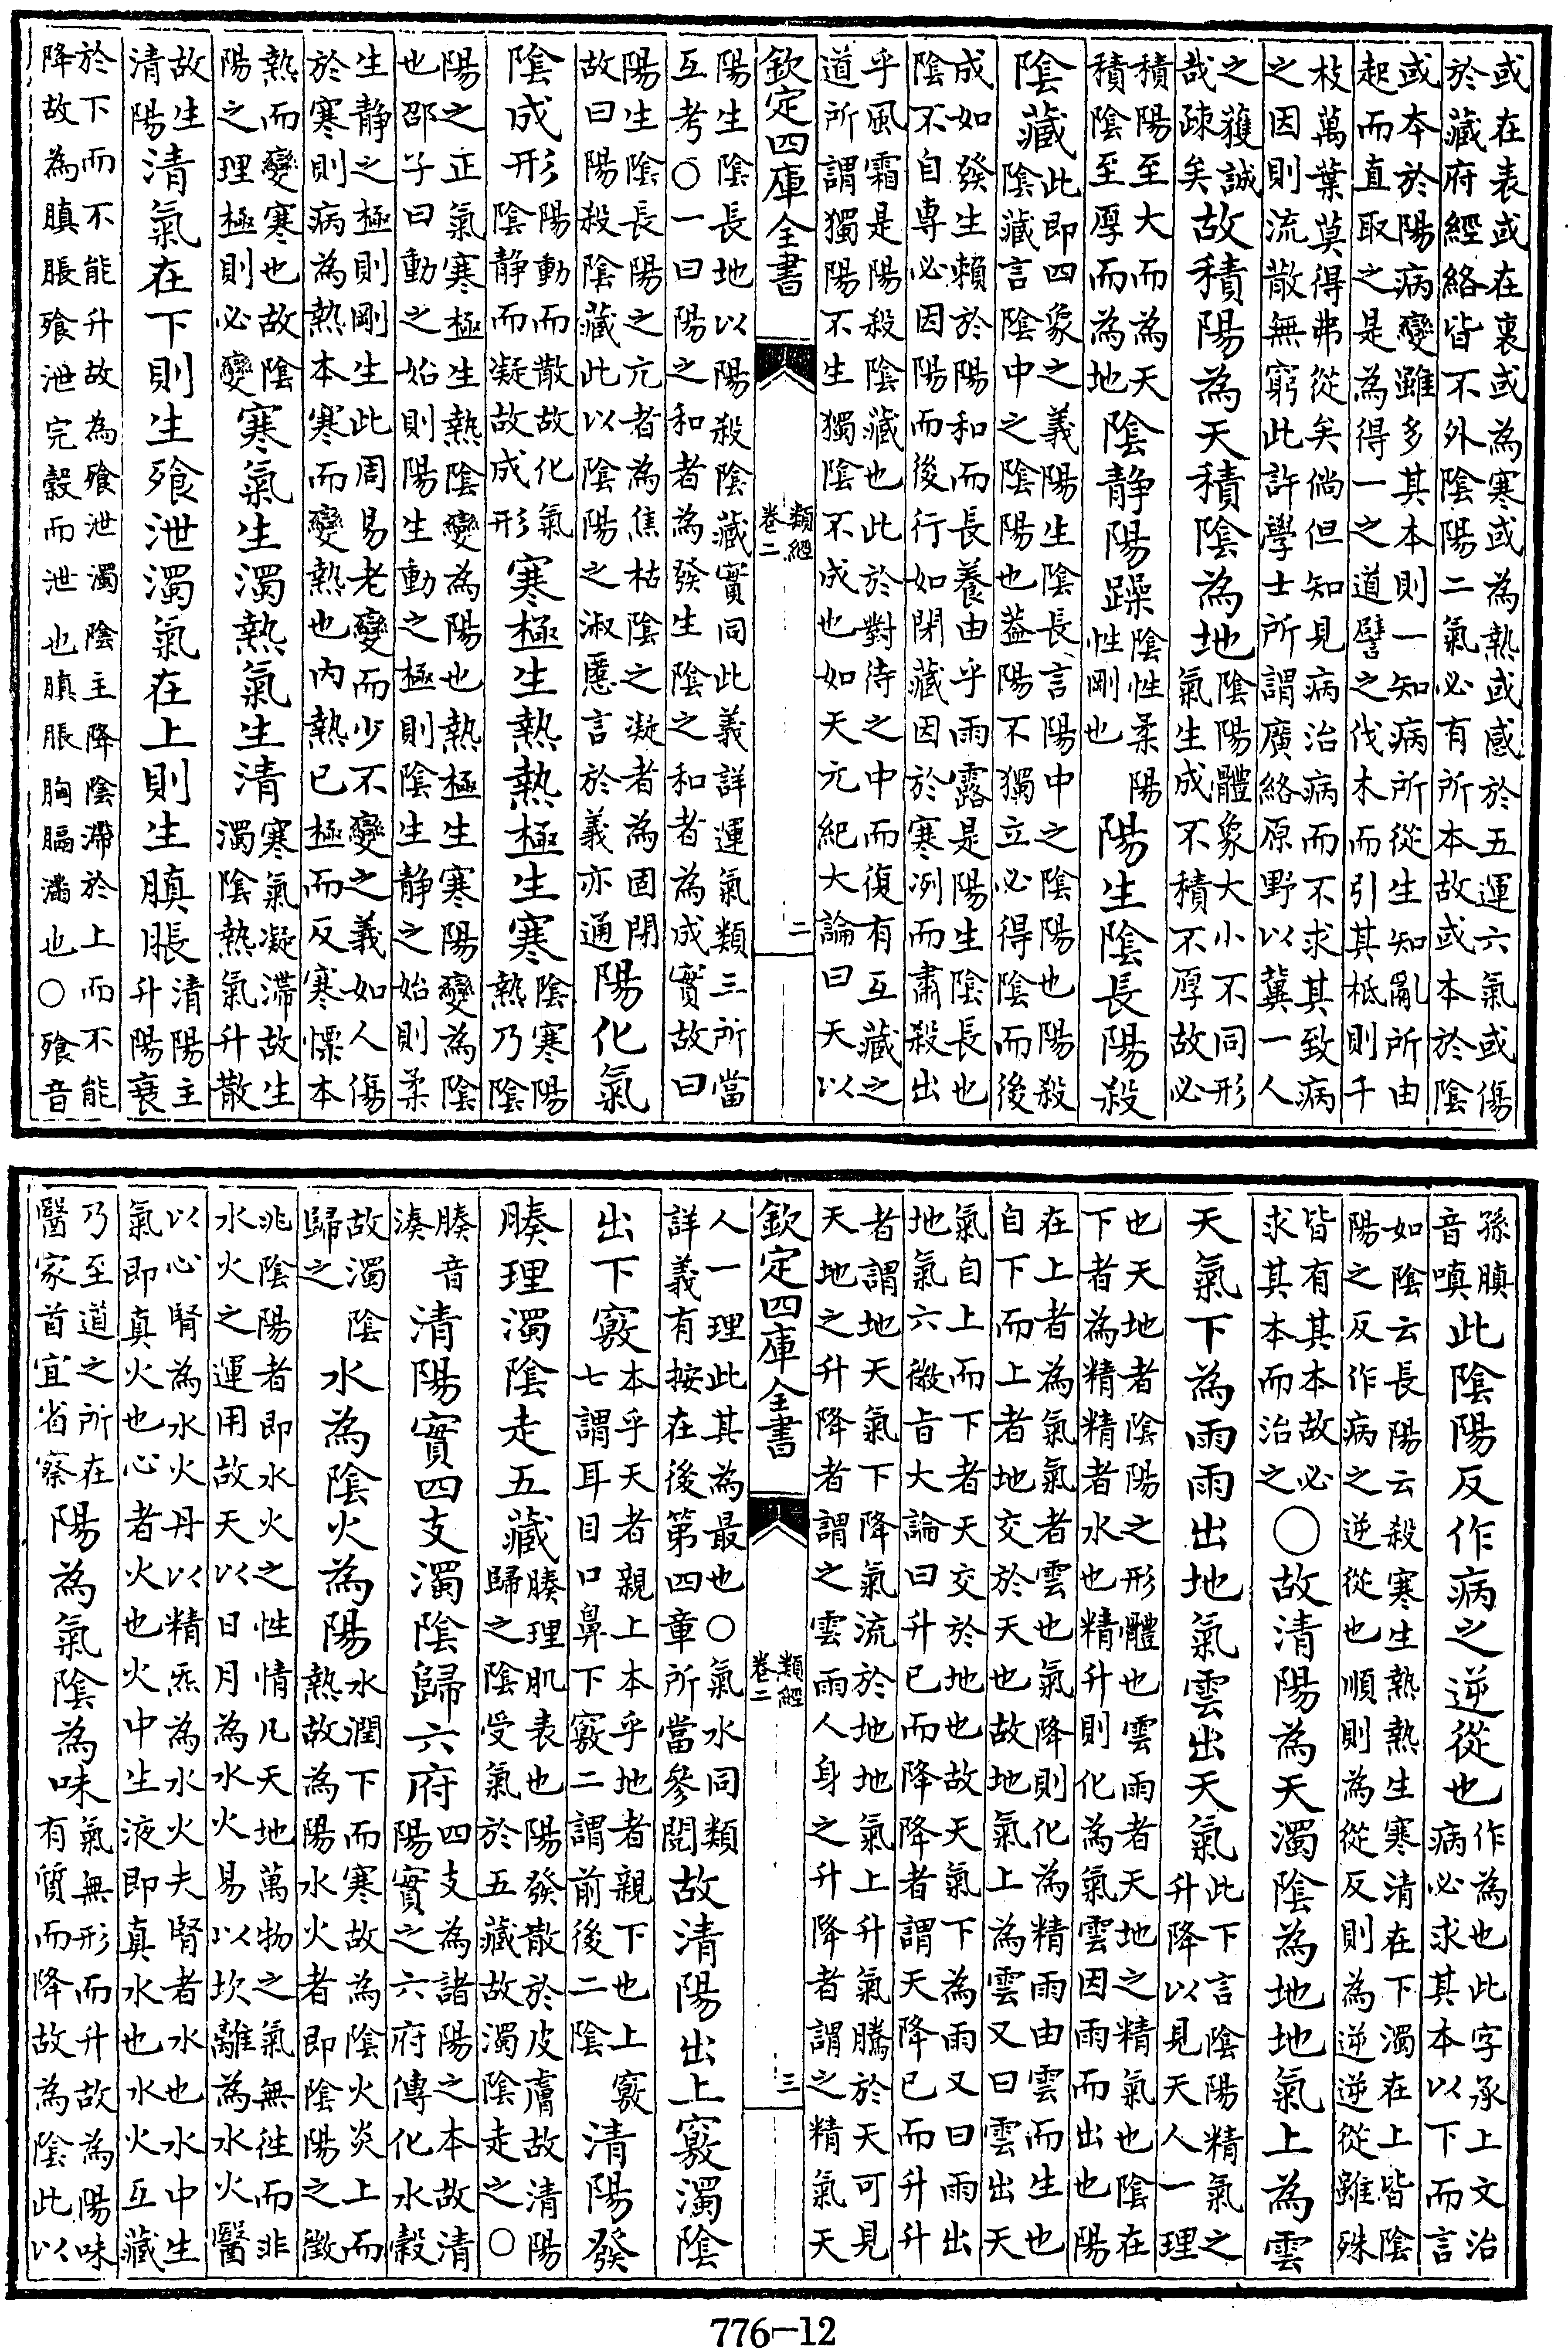 或在表或在裏或為寒或為熱或感於五運六氣或傷
於藏府經絡皆不外陰陽二氣必有所本故或本於陰
或本於陽病變雖多其本則一知病所從生知亂所由
起而直取之是為得一之道譬之伐木而引其柢則千
枝萬葉莫得弗從矣倘但知見病治病而不求其致病
之因則流散無窮此許學士所謂廣絡原野以冀一人
之獲誠哉疎矣故積陽為天積陰為地陰陽體象大小不同形氣生成不積不厚故必
積陽至大而為天積陰至厚而為地陰静陽躁陰性柔陽性剛也陽生陰長陽殺
陰藏此即四象之義陽生陰長言陽中之陰陽也陽殺陰藏言陰中之陰陽也蓋陽不獨立必得陰而後
成如發生賴於陽和而長養由乎雨露是陽生陰長也
陰不自專必因陽而後行如閉藏因於寒冽而肅殺出
乎風霜是陽殺陰藏也此於對待之中而復有互藏之
道所謂獨陽不生獨陰不成也如天元紀大論曰天以
欽定四庫全書
類經
卷二
二
陽生陰長地以陽殺陰藏實同此義詳運氣類三所當
互考○一曰陽之和者為發生陰之和者為成實故曰
陽生陰長陽之亢者為焦枯陰之凝者為固閉故曰陽殺陰藏此以陰陽之淑慝言於義亦通陽化氣
陰成形陽動而散故化氣陰静而凝故成形寒極生熱熱極生寒陰寒陽熱乃陰
陽之正氣寒極生熱陰變為陽也熱極生寒陽變為陰
也邵子曰動之始則陽生動之極則陰生静之始則柔
生静之極則剛生此周易老變而少不變之義如人傷
於寒則病為熱本寒而變熱也内熱已極而反寒慄本
熱而變寒也故陰陽之理極則必變寒氣生濁熱氣生清寒氣凝滯故生濁陰熱氣升散
故生清陽清氣在下則生飱泄濁氣在上則生䐜脹清陽主升陽衰
於下而不能升故為飱泄濁陰主降陰滯於上而不能
降故為䐜脹飱泄完穀而泄也䐜脹胸膈滿也○飱音
孫䐜音嗔此陰陽反作病之逆從也作為也此字承上文治病必求其本以下而言
如陰云長陽云殺寒生熱熱生寒清在下濁在上皆陰
陽之反作病之逆從也順則為從反則為逆逆從雖殊
皆有其本故必求其本而治之○故清陽為天濁陰為地地氣上為雲
天氣下為雨雨出地氣雲出天氣此下言陰陽精氣之升降以見天人一理
也天地者陰陽之形體也雲雨者天地之精氣也陰在
下者為精精者水也精升則化為氣雲因雨而出也陽
在上者為氣氣者雲也氣降則化為精雨由雲而生也
自下而上者地交於天也故地氣上為雲又曰雲出天
氣自上而下者天交於地也故天氣下為雨又曰雨出
地氣六微旨大論曰升已而降降者謂天降已而升升
者謂地天氣下降氣流於地地氣上升氣騰於天可見
天地之升降者謂之雲雨人身之升降者謂之精氣天
欽定四庫全書
類經
卷二
三
人一理此其為最也○氣水同類詳義有按在後第四章所當參閲故清陽出上竅濁陰
出下竅本乎天者親上本乎地者親下也上竅七謂耳目口鼻下竅二謂前後二陰清陽發
腠理濁陰走五藏腠理肌表也陽發散於皮膚故清陽歸之陰受氣於五藏故濁陰走之○
腠音湊清陽實四支濁陰歸六府四支為諸陽之本故清陽實之六府傳化水穀
故濁陰歸之水為陰火為陽水潤下而寒故為陰火炎上而熱故為陽水火者即陰陽之徵
兆陰陽者即水火之性情凡天地萬物之氣無往而非
水火之運用故天以日月為水火易以坎離為水火醫
以心腎為水火丹以精炁為水火夫腎者水也水中生
氣即真火也心者火也火中生液即真水也水火互藏
乃至道之所在醫家首宜省察陽為氣陰為味氣無形而升故為陽味有質而降故為陰此以
776-12